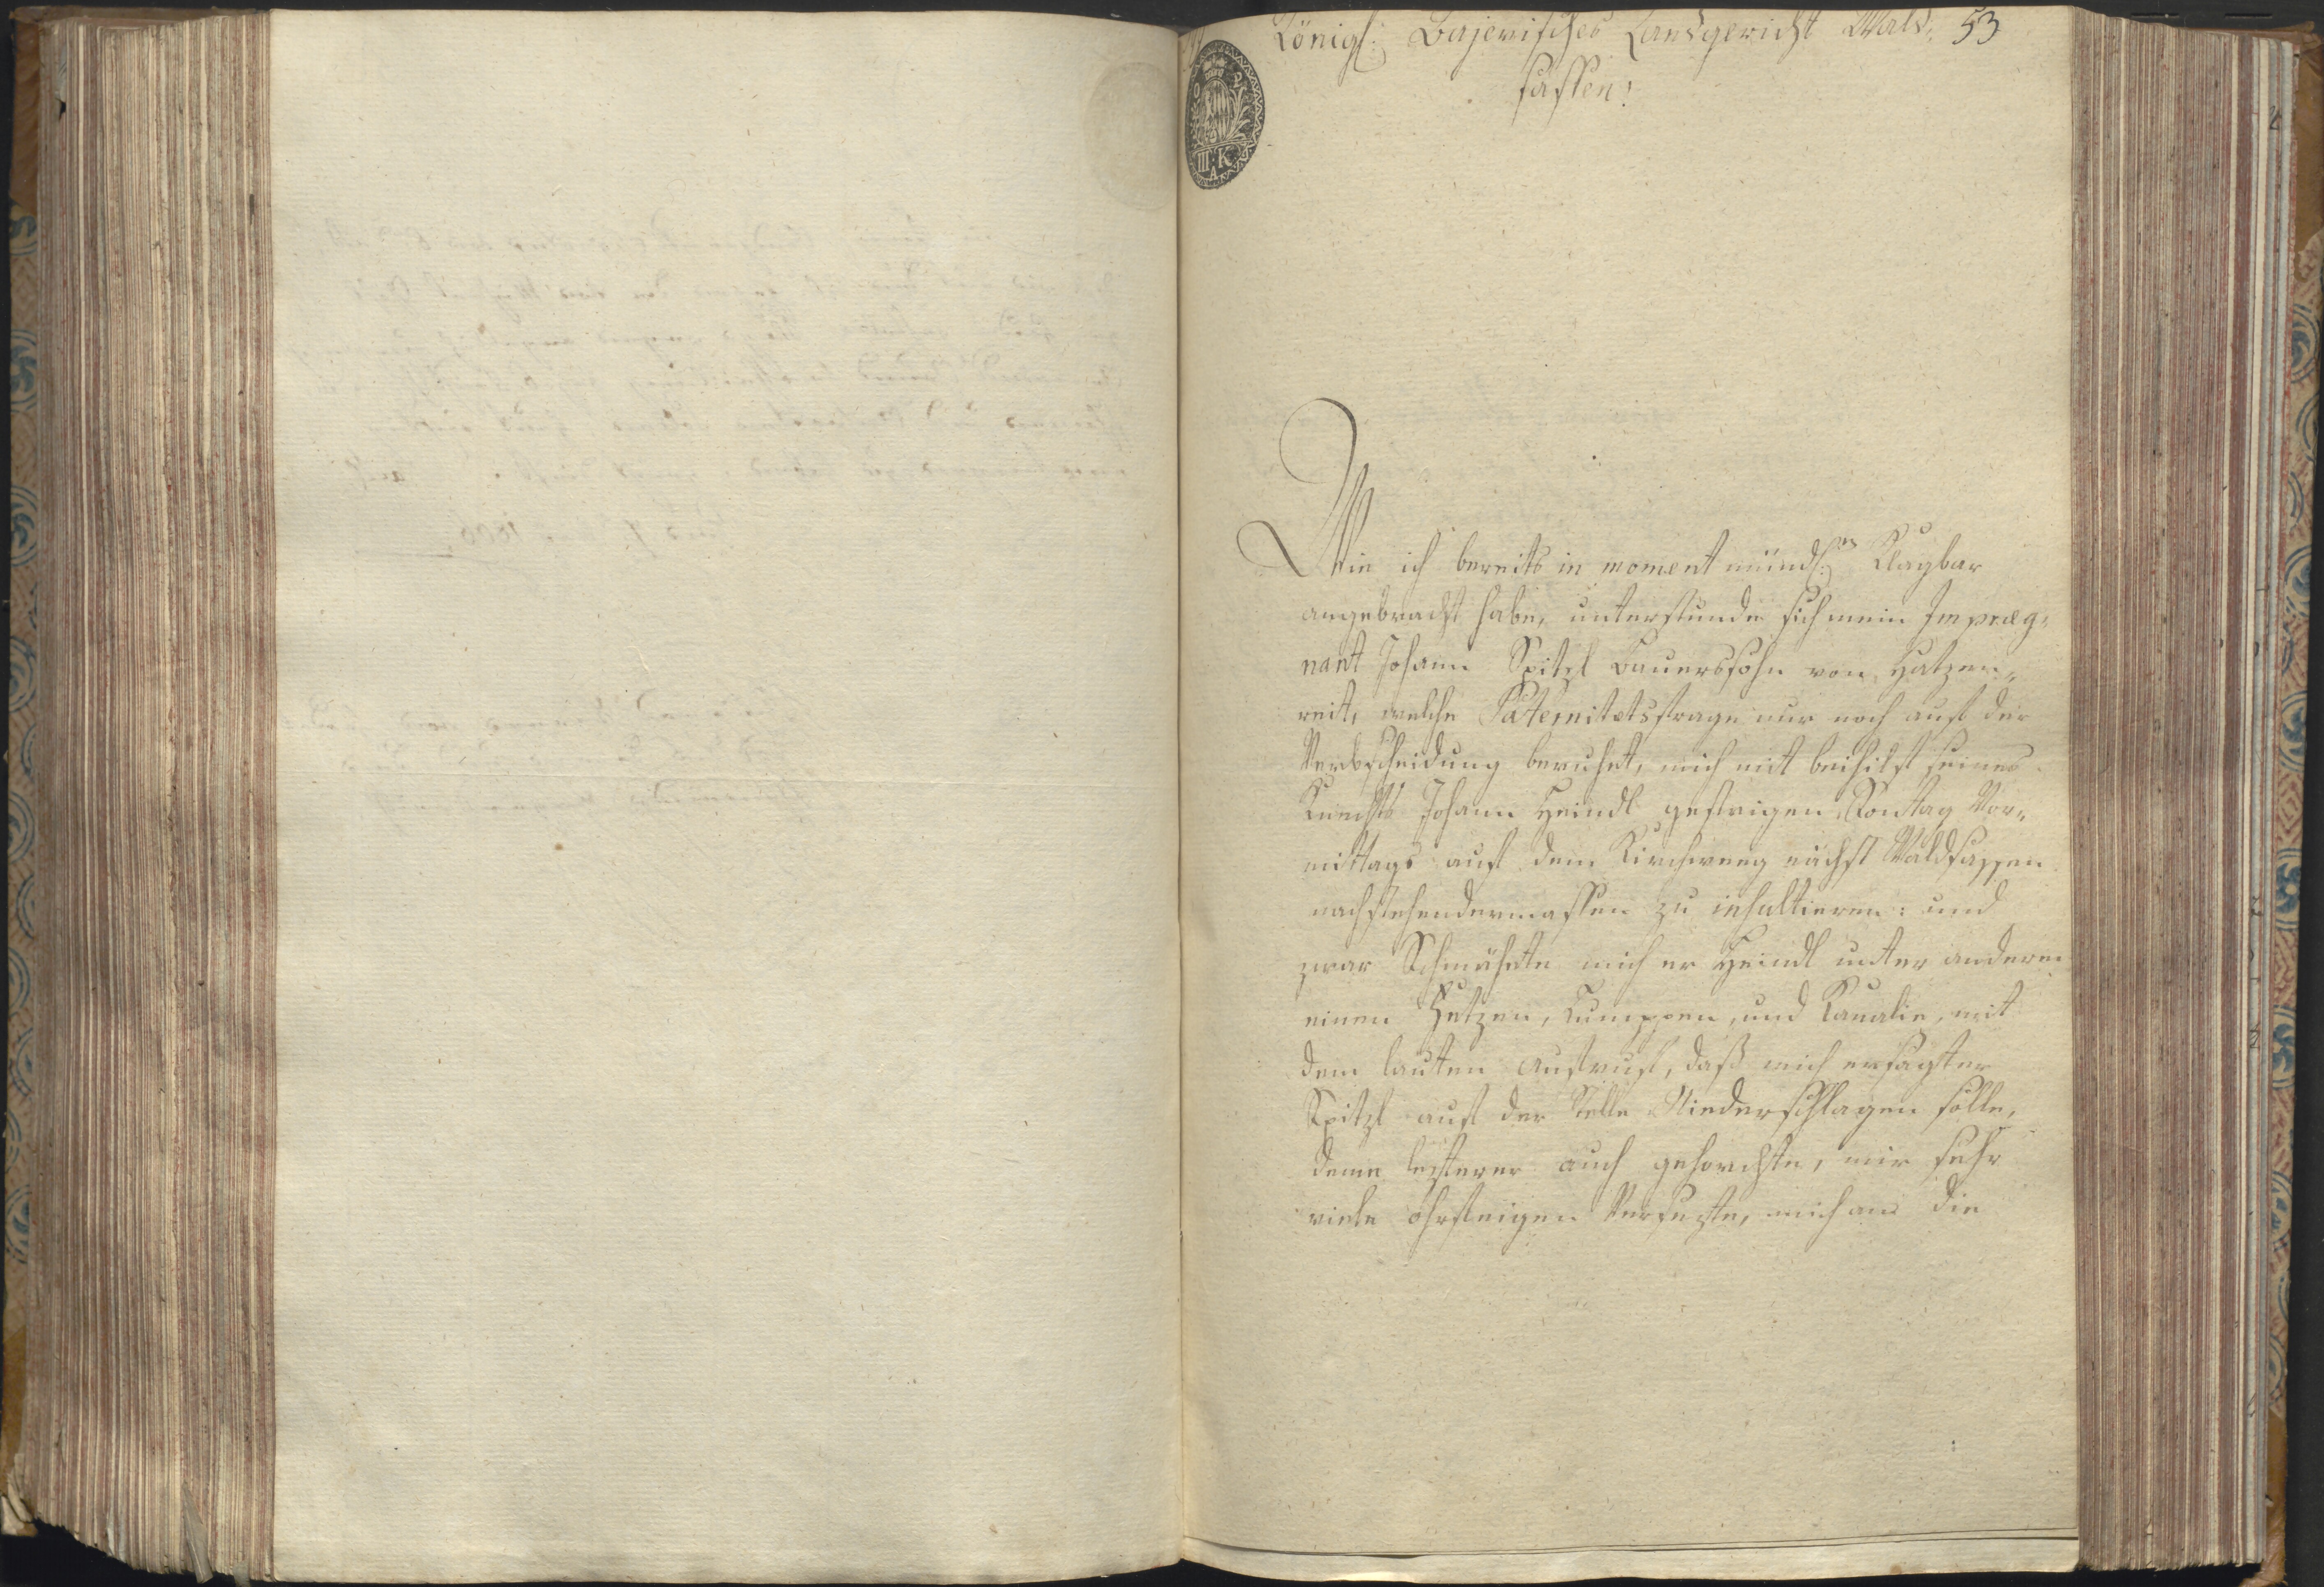 Königl: Bajerisches Landgericht Wald- 53
sassen!
III K
A
Wie ich bereits in moment mündl:en Klagbar
angebracht habe, unterstunde sich mein Impræg-
nant Johann Spitzl Bauerssohn von Hatzen-
reit, welche Paternitætsfrage nur noch auf der
Verbscheidung beruhet, mich mit beihilf seines
Knechts Johann Heindl gestrigen Sontag Vor-
mittags auf dem Kirchweeg nächst Waldsassen
nachstehendermassen zu insultieren: und
zwar Schmähete mich er Heindl unter anderem
einen Hetzen, Lumppen, und Kanalie, mit
dem lauten Ausruf, daß mich ersagter
Spitzl auf der Stelle Niederschlagen solle,
deme lezterer auch gehorchte, mir sehr
viele ohrfeigen Versezte, mich an die